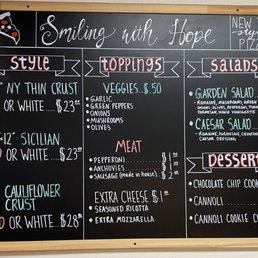 Smiling with Hope
NEW
PIZ
style
" NY THIN CRUST
OR WHITE.... $23
12" SICILIAN
OR WHITE... $23
CAULIFLOWER
CRUST
OR WHITE... $28
toppings
VEGGIES $.50
GARLIC
GREEN PEPPERS
ONIONS
MUSHROOMS
OLIVES
MEAT
PEPPERONI
ANCHOVIES
SAUSAGE (made in house)
EXTRA CHEESE $1
SEASONED RICOTTA
EXTRA MOZZARELLA
salads
GARDEN SALAD
CAESAR SALAD
dessert
CHOCOLATE CHIP COOK
CANNOLI
CANNOLI COOKIE C